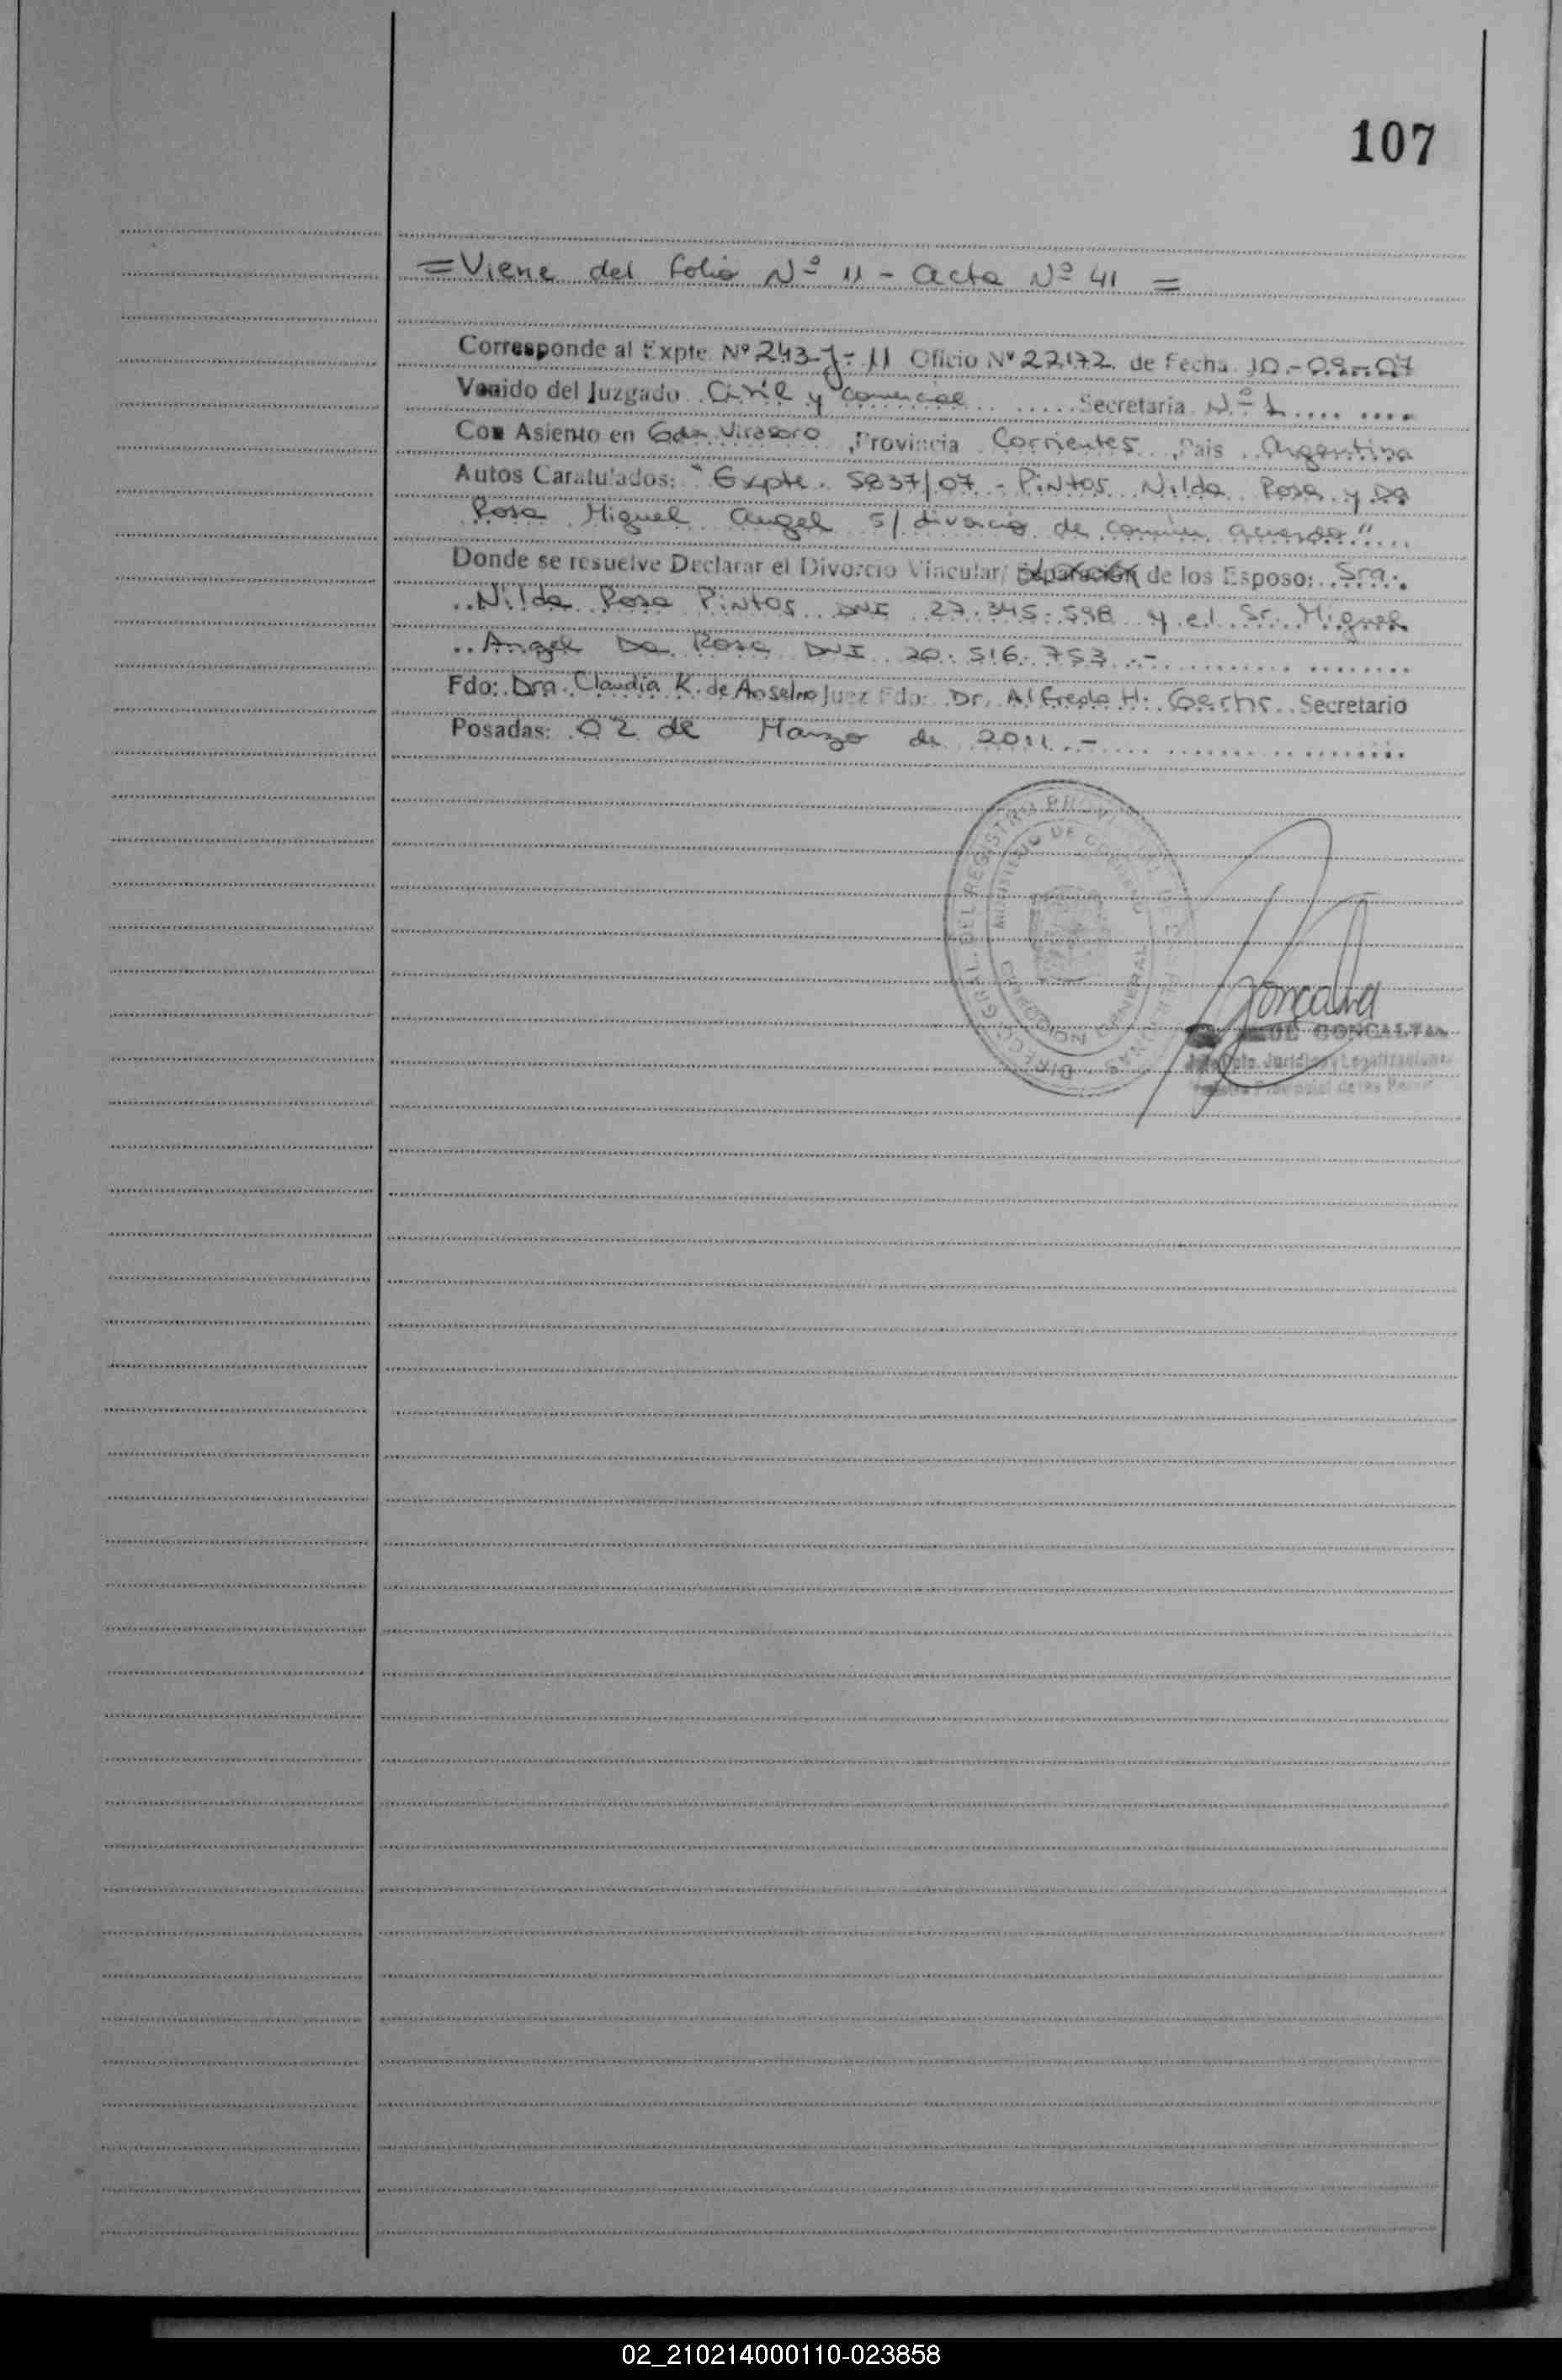 107
=Viene del folio Nº 11 - acta Nº 41 =
Corresponde al Expte. Nº 243-J-11 Oficio Nº 22172 de Fecha 10-09-07
Venido del Juzgado Civil y Comercial Secretaria Nº 1
Con Asiento en Gdor. Virasoro, Provincia Corrientes, Pais Argentina
Autos Caratulados: "Expte. 5837/07 - Pintos Nilda Rosa y Da
Rosa Miguel Angel s/ divorcio de común acuerdo"
Donde se resuelve Declarar el Divorcio Vincular/ Separación de los Esposo: Sra.
Nilda Rosa Pintos DNI 27.345.598 y el Sr. Miguel
Angel Da Rosa DNI 20.516.753.-
Fdo: Dra. Claudia K. de Anselmo Juez Fdo: Dr. Alfredo H. Secretario
Posadas: 02 de Marzo de 2011.-
DIRECC. GRAL. DEL REGISTRO PROVINCIAL DE LAS PERSONAS
MINISTERIO DE GOBIERNO
DE GONCALVES
Dpto. Jurídico y Legalizaciones
Provincial de las
02_210214000110-023858